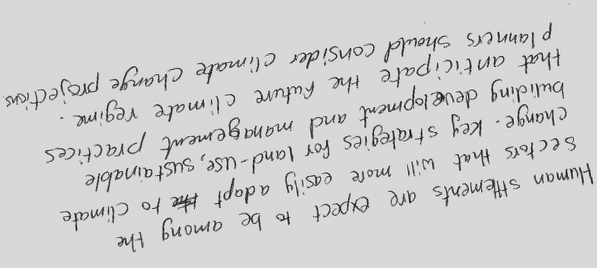 Human sttlements are expect to be among the
sectors that will more easily adapt to climate
change. Key strategies for land-use, sustainable
building development and management practices
that anticipate the future climate regime.
planners should consider climate change projections